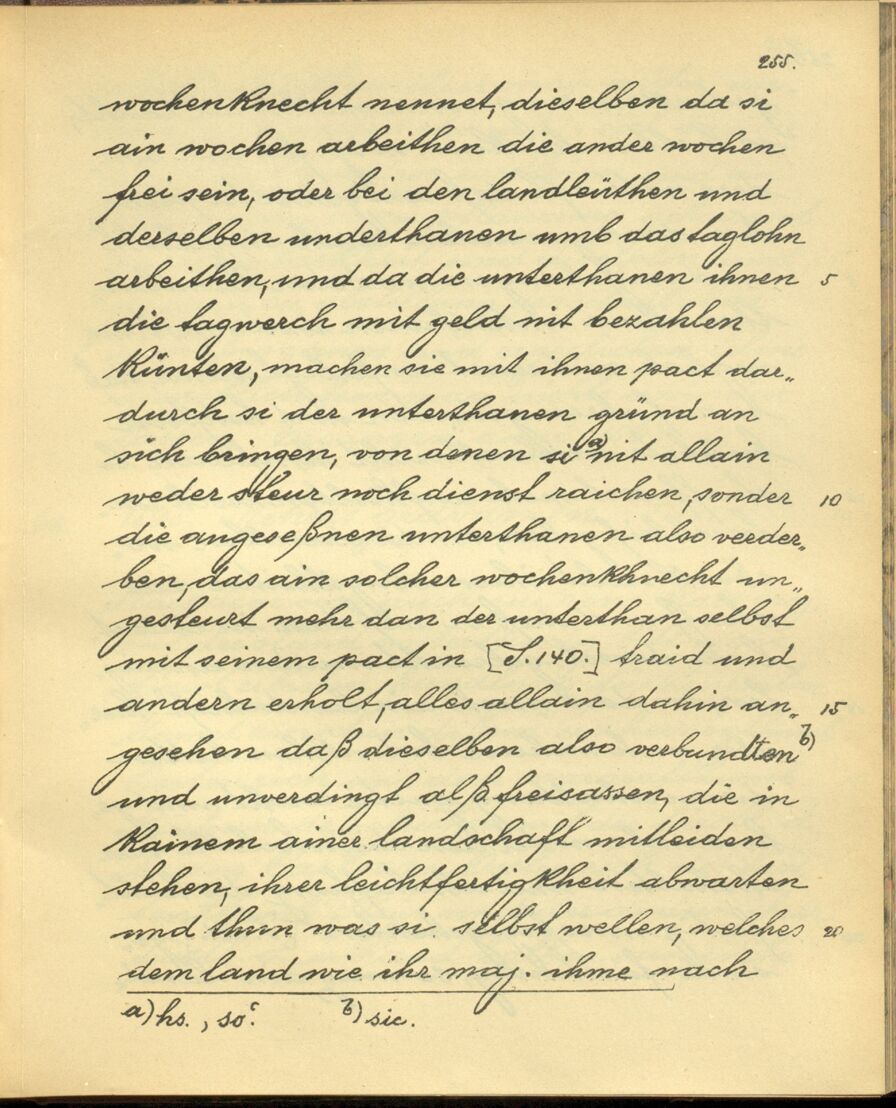 255.
wochenknecht nennet, dieselben da si
ain wochen arbeithen die ander wochen
frei sein, oder bei den landleüthen und
derselben underthanen umb das taglohn
arbeithen, und da die unterthanen ihnen 5
die tagwerch mit geld nit bezahlen
künten, machen sie mit ihnen pact dar„
durch si der unterthanen gründ an
sich bringen, von denen si a) nit allain
weder steur noch dienst raichen, sonder 10
die angeseßnen unterthanen also verder„
ben, das ain solcher wochenkhnecht un„
gesteurt mehr dan der unterthan selbst
mit seinem pact in [S. 140.] traid und
andern erholt, alles allain dahin an„ 15
gesehen daß dieselben also verbundten b)
und unverdingt alß freisassen, die in
kainem ainer landschaft mitleiden
stehen, ihrer leichtfertigkheit abwarten
und thun was si selbst wellen, welches 20
dem land wie ihr maj. ihme nach
a) hs., so'. b) sic.